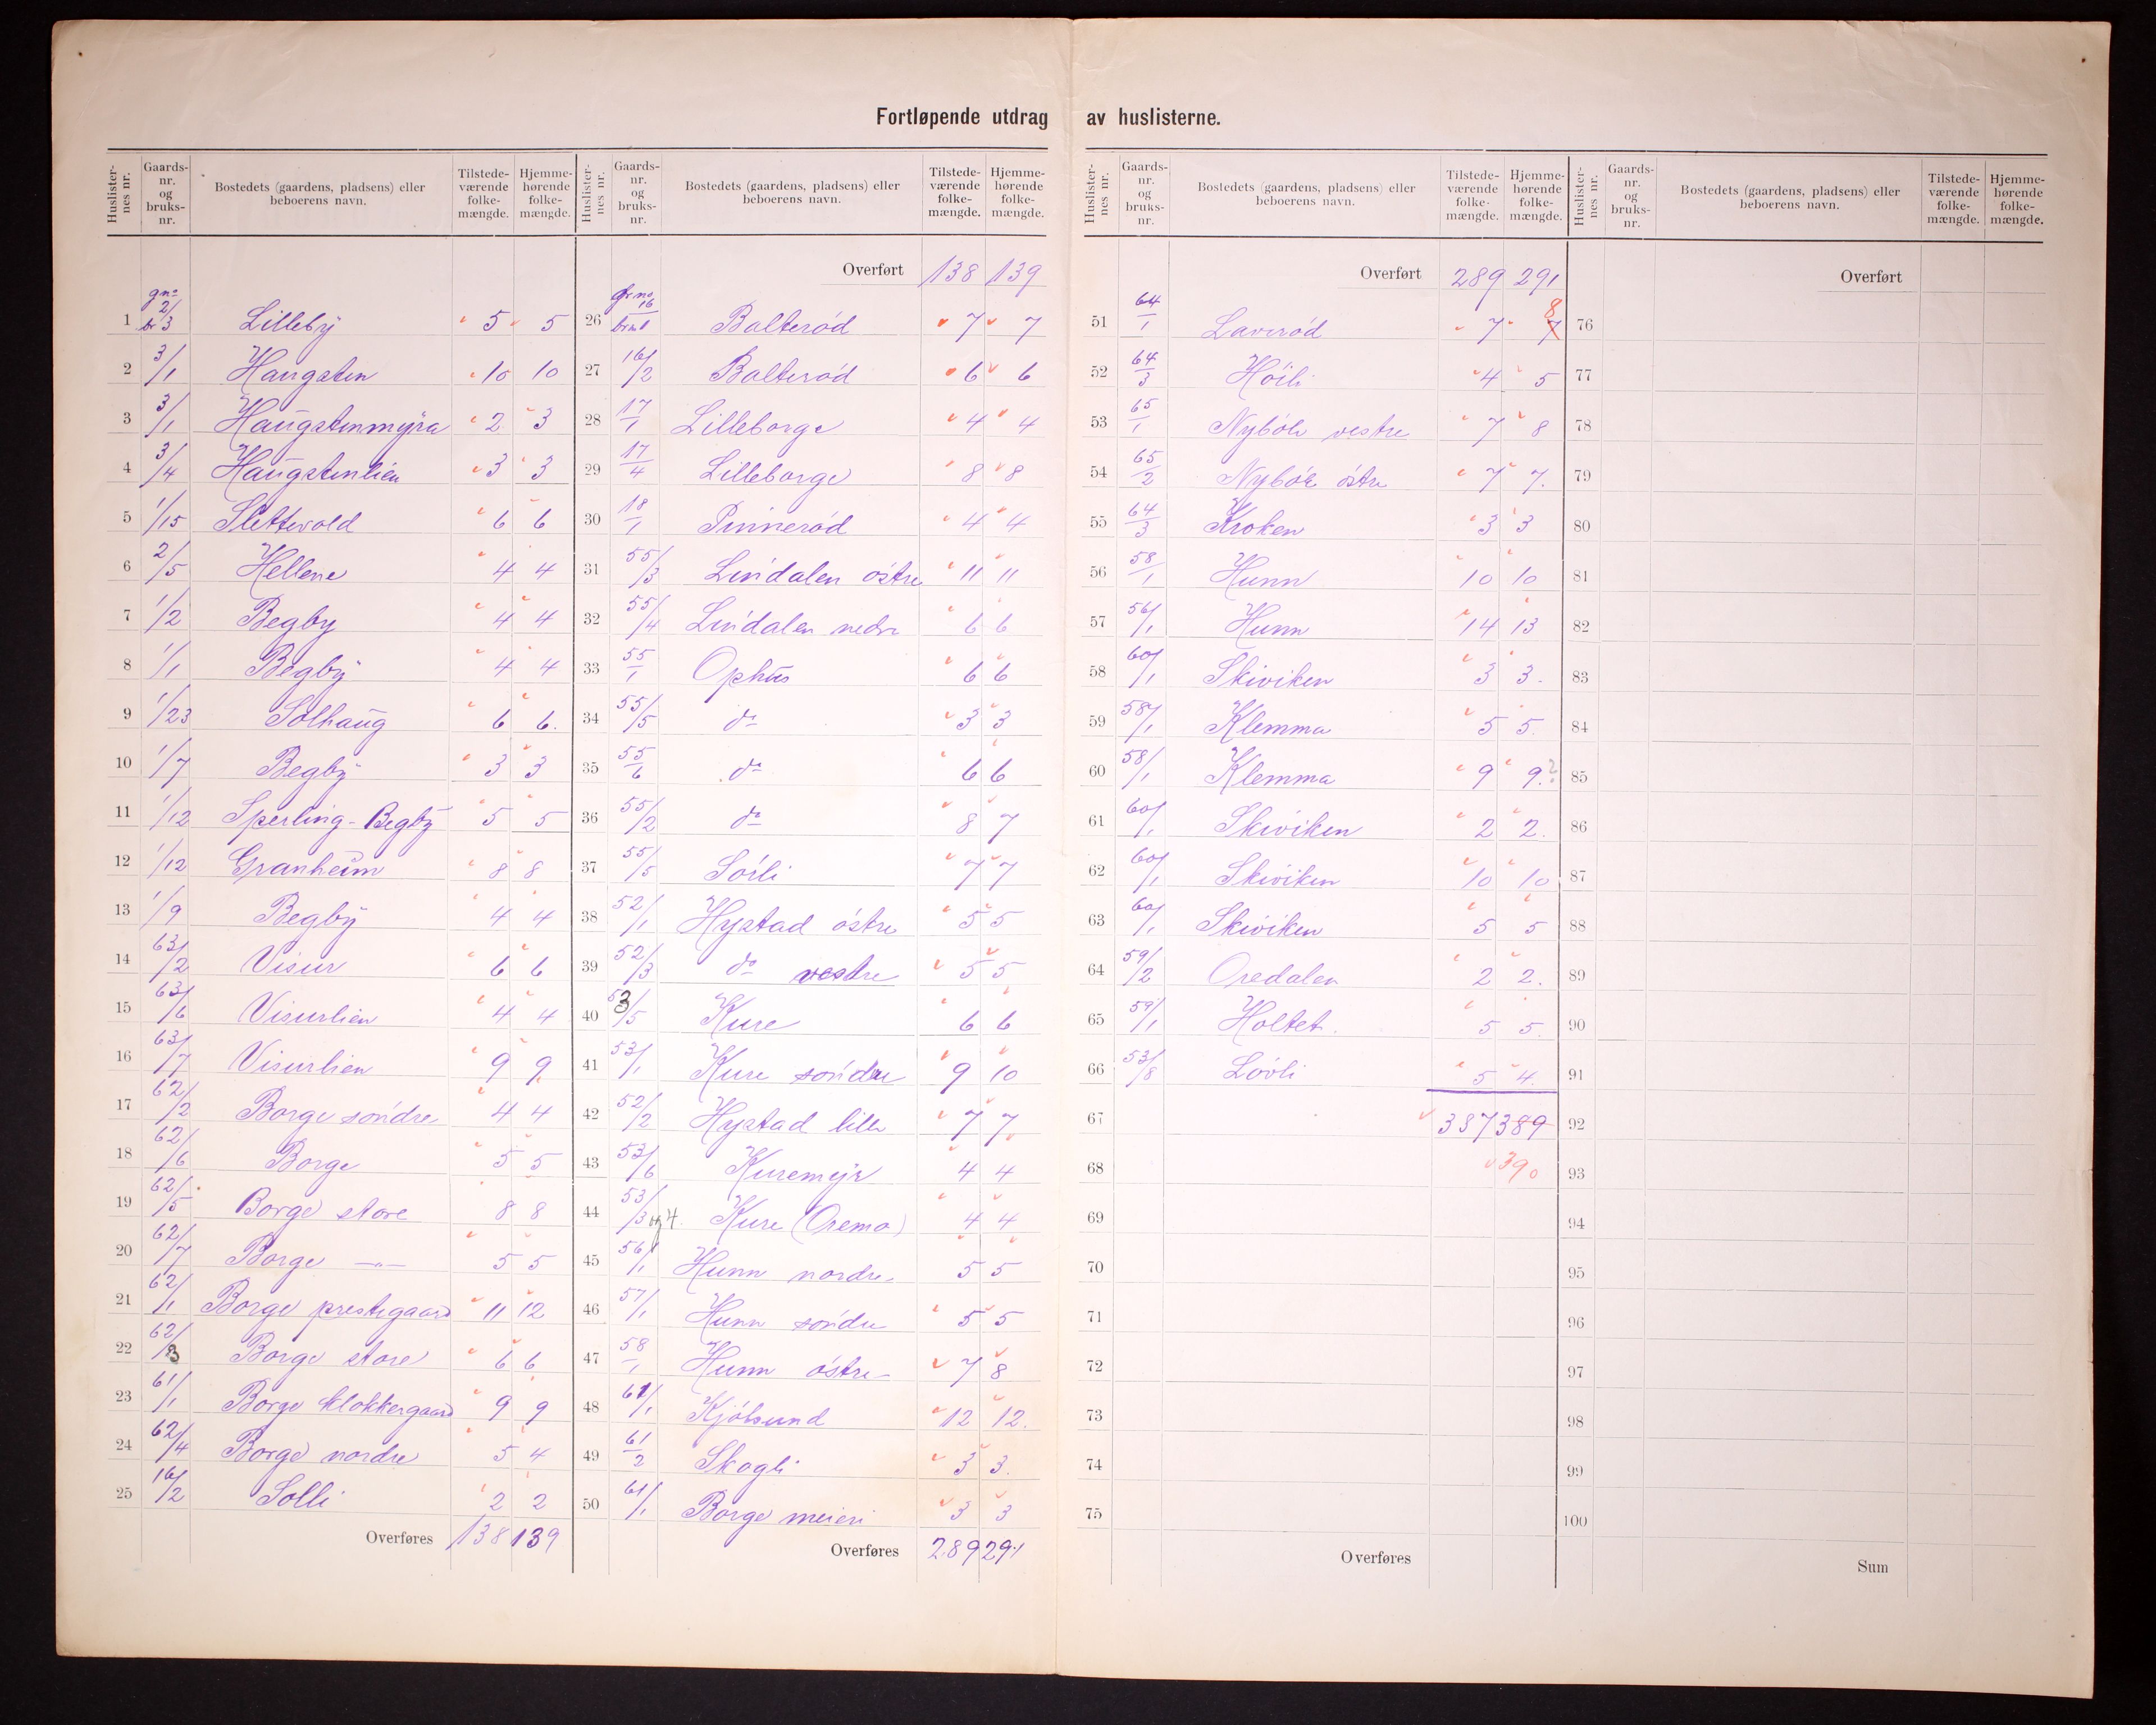 Fortløpende utdrag av huslisterne.
Huslister-nes nr. Gaards-nr. og bruks-nr. Bostedets (gaardens, pladsens) eller beboerens navn. Tilstede-værende folke-mængde. Hjemme-hørende folke-mængde.
1 gno 2/ br 3 Lilleby 5 5
2 3/1 Haugsten 10 10
3 3/1 Haugstenmyra 2 3
4 3/4 Haugstenlien 3 3
5 1/15 Slettevold 6 6
6 2/5 Hellene 4 4
7 1/2 Begby 4 4
8 1/1 Begby 4 4
9 1/23 Solhaug 6 6.
10 1/7 Begby 3 3
11 1/12 Sperling-Begby 5 5
12 1/12 Granheim 8 8
13 1/9 Begby 4 4
14 63/2 Visur 6 6
15 63/6 Visurlien 4 4
16 63/7 Visurlien 9 9
17 62/2 Borge söndre 4 4
18 62/6 Borge 5 5
19 62/5 Borge store 8 8
20 62/7 Borge —"— 5 5
21 62/1 Borge prestegaard 11 12
22 62/3 Borge store 6 6
23 61/1 Borge klokkergaard 9 9
24 62/4 Borge nordre 5 4
25 16/2 Solli 2 2
Overføres 138 139
Huslister-nes nr. Gaards-nr. og bruks-nr. Bostedets (gaardens, pladsens) eller beboerens navn. Tilstede-værende folke-mængde. Hjemme-hørende folke-mængde.
Overført 138 139
26 Gr no 16 br no 1 Balterød 7 7
27 16/2 Balterød 6 6
28 17/1 Lilleborge 4 4
29 17/4 Lilleborge 8 8
30 18/1 Pinnerød 4 4
31 55/3 Lindalen östre 11 11
32 55/4 Lindalen nedre 6 6
33 55/1 Ophus 6 6
34 55/5 do 3 3
35 55/6 do 6 6
36 55/2 do 8 7
37 55/5 Sörli 7 7
38 52/1 Hystad östre 5 5
39 52/3 do vestre 5 5
40 53/5 Kure 6 6
41 53/1 Kure söndre 9 10
42 52/2 Hystad lille 7 7
43 53/6 Kuremyr 4 4
44 53/3 og 4. Kure (Oremo) 4 4
45 56/1 Hunn nordre 5 5
46 57/1 Hunn söndre 5 5
47 58/1 Hunn östre 7 8
48 61/1 Kjölsund 12 12.
49 61/2 Skogli 3 3.
50 61/1 Borge meieri 3 3
Overføres 289 291
Huslister-nes nr. Gaards-nr. og bruks-nr. Bostedets (gaardens, pladsens) eller beboerens navn. Tilstede-værende folke-mængde. Hjemme-hørende folke-mængde.
Overført 289 291
51 64/1 Laverød 7 7 8
52 64/3 Höili 4 5
53 65/1 Nyböle vestre 7 8
54 65/2 Nyböle östre 7 7.
55 64/3 Kroken 3 3
56 58/1 Hunn 10 10
57 56/1 Hunn 14 13
58 60/1 Skiviken 3 3.
59 58/1 Klemma 5 5.
60 58/1 Klemma 9 9.?
61 60/1 Skiviken 2 2.
62 60/1 Skiviken 10 10
63 60/1 Skiviken 5 5
64 59/2 Oredalen 2 2.
65 59/1 Holtet. 5 5.
66 53/8 Lövli 5 4.
67 387 389
68 390
69
70
71
72
73
74
75
Overføres
Huslister-nes nr. Gaards-nr. og bruks-nr. Bostedets (gaardens, pladsens) eller beboerens navn. Tilstede-værende folke-mængde. Hjemme-hørende folke-mængde.
Overført
76
77
78
79
80
81
82
83
84
85
86
87
88
89
90
91
92
93
94
95
96
97
98
99
100
Sum